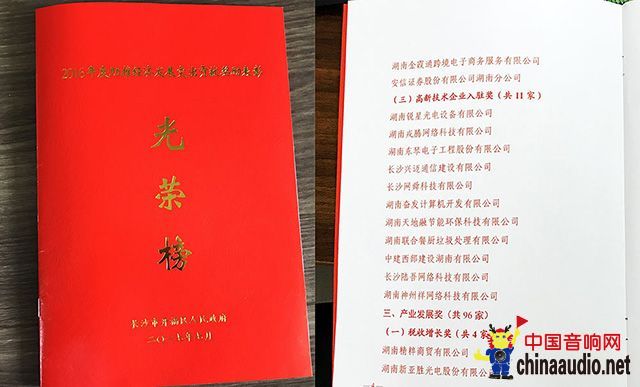 光荣榜
长沙市开福区人民政府
二〇一七年七月
湖南金霞通跨境电子商务服务有限公司
安信证券股份有限公司湖南分公司
(三)高新技术企业入驻奖(共11家)
湖南锐星光电设备有限公司
湖南戎腾网络科技有限公司
湖南东琴电子工程股份有限公司
长沙兴迈通信建设有限公司
长沙网舜科技有限公司
湖南奋发计算机开发有限公司
湖南天地融节能环保科技有限公司
湖南联合餐厨垃圾处理有限公司
中建西部建设湖南有限公司
长沙陆吾网络科技有限公司
湖南神州祥网络科技有限公司
三、产业发展奖(共96家)
(一)税收增长奖(共4家
湖南精梓商贸有限公司
湖南新亚胜光电股份有限公
中国音响网
chinaaudio.net